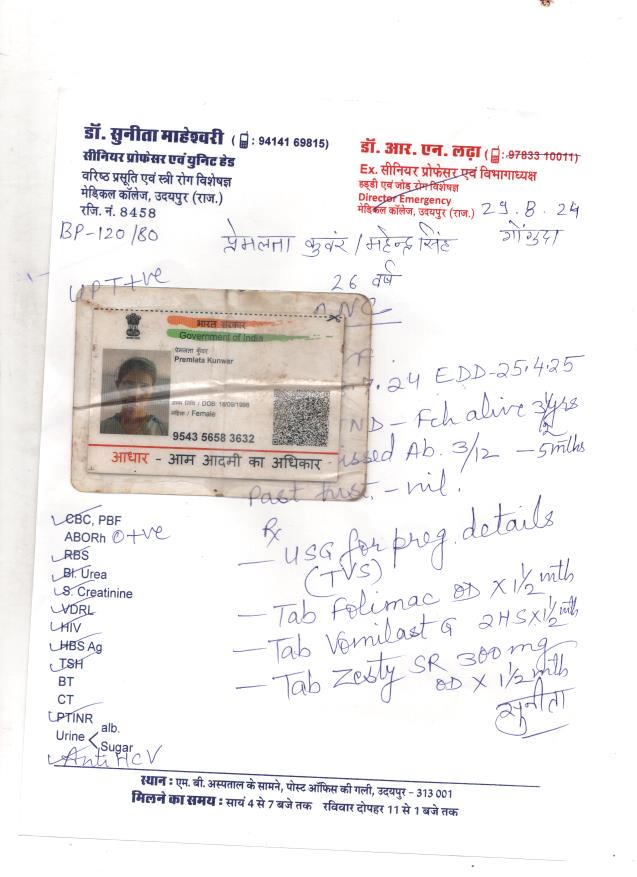 डॉ. सुनीता माहेश्वरी ( : 94141 69815)
सीनियर प्रोफेसर एवं यूनिट हेड
वरिष्ठ प्रसूति एवं स्त्री रोग विशेषज्ञ
मेडिकल कॉलेज, उदयपुर (राज.)
रजि. नं. 8458
डॉ. आर. एन. लढ़ा ( : 97833 10011)
Ex. सीनियर प्रोफेसर एवं विभागाध्यक्ष
हड्डी एवं जोड़ रोग विशेषज्ञ
Director Emergency
मेडिकल कॉलेज, उदयपुर (राज.)
29.8.24
BP-120/80
प्रेमलता कुवंर / महेन्द्र सिंह गोगुन्दा
UPT+ve
26 वर्ष
भारत सरकार
Government of India
प्रेमलता कुँवर
Premlata Kunwar
जन्म तिथि / DOB: 18/09/1998
महिला / Female
9543 5658 3632
आधार - आम आदमी का अधिकार
.24 EDD-25.4.25
ND - Fch alive 3½yrs
issed Ab. 3/12 - 5mths
Past hist. - nil.
CBC, PBF
ABORh O+ve
RBS
Bl. Urea
S. Creatinine
VDRL
HIV
HBS Ag
TSH
BT
CT
PTINR
Urine alb.
Sugar
Anti HCV
Rx
- USG for preg. details
(TVS)
- Tab Folimac OD X 1½ mth
- Tab Vomilast G 2HS X 1½ mth
- Tab Zesty SR 300mg
OD X 1½ mth
सुनीता
स्थान : एम. बी. अस्पताल के सामने, पोस्ट ऑफिस की गली, उदयपुर - 313 001
मिलने का समय : सायं 4 से 7 बजे तक रविवार दोपहर 11 से 1 बजे तक